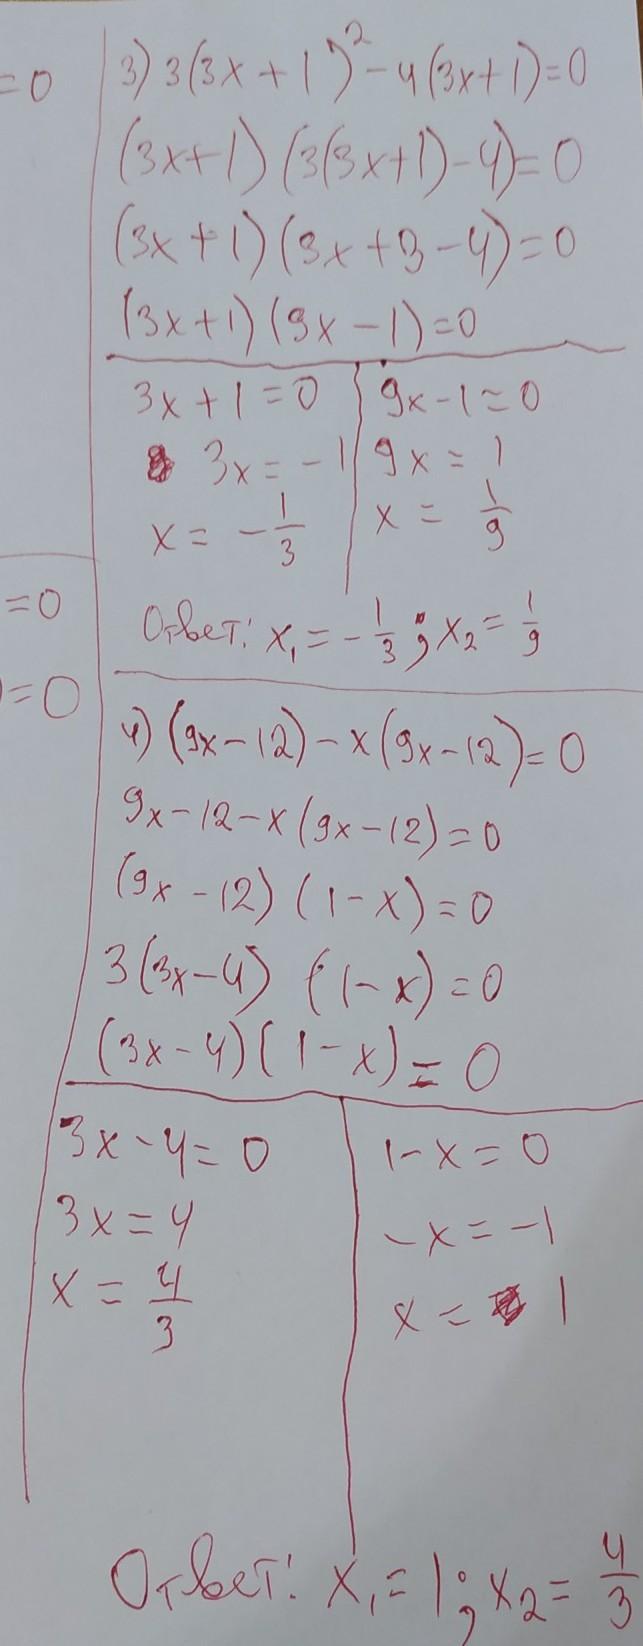 =0
3) 3(3x+1)²-4(3x+1)=0
(3x+1)(3(3x+1)-4)=0
(3x+1)(9x+3-4)=0
(3x+1)(9x-1)=0
3x+1=0
3x=-1
x=-1/3
9x-1=0
9x=1
x=1/9
=0
Ответ: x₁=-1/3; x₂=1/9
)=0
4) (9x-12)-x(9x-12)=0
9x-12-x(9x-12)=0
(9x-12)(1-x)=0
3(3x-4)(1-x)=0
(3x-4)(1-x)=0
3x-4=0
3x=4
x=4/3
1-x=0
-x=-1
x=1
Ответ: x₁=1; x₂=4/3